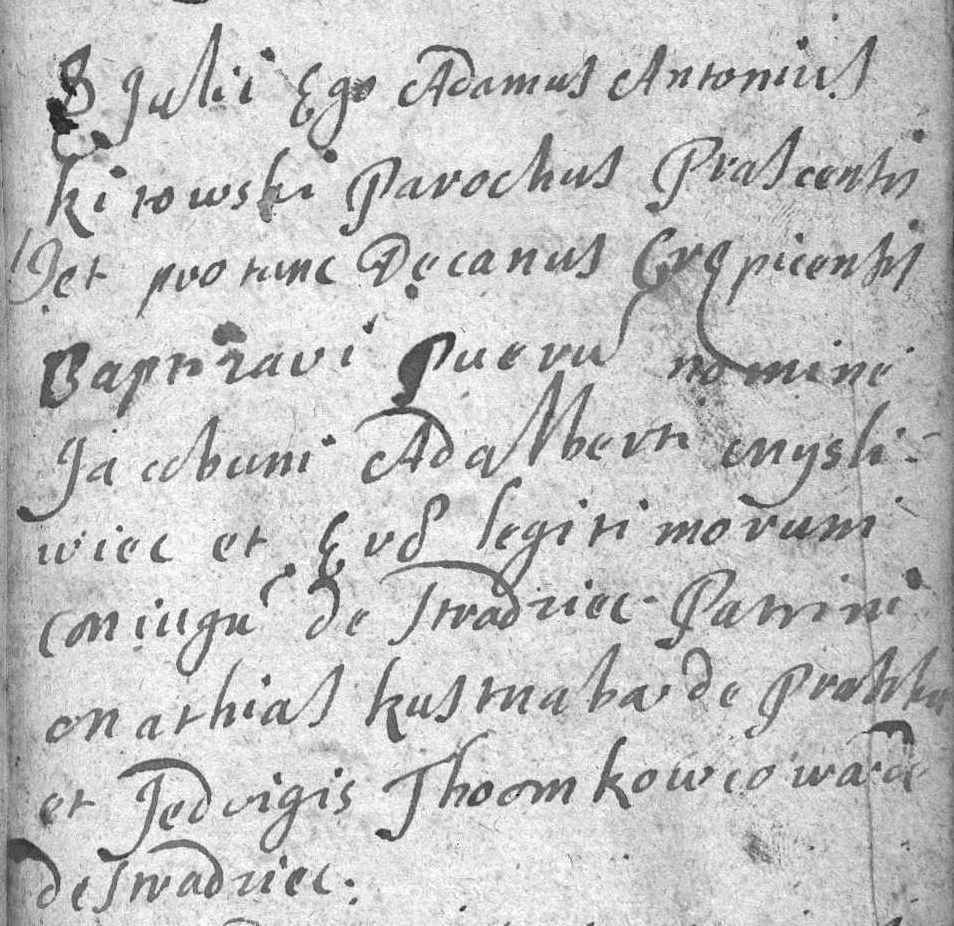 8 Julii Ego Adamus Antonius
kitowski Parochus Prascensis
et protunc Decanus Crepicensis
Baptizavi Pueru nomine
Jacobum Adalberti Mysli-
wiec et legitimorum
coniugu de Stradziec Patrini
Mathias de Praszka
et Jedvigis Thoomkowcowa
de Stradziec.